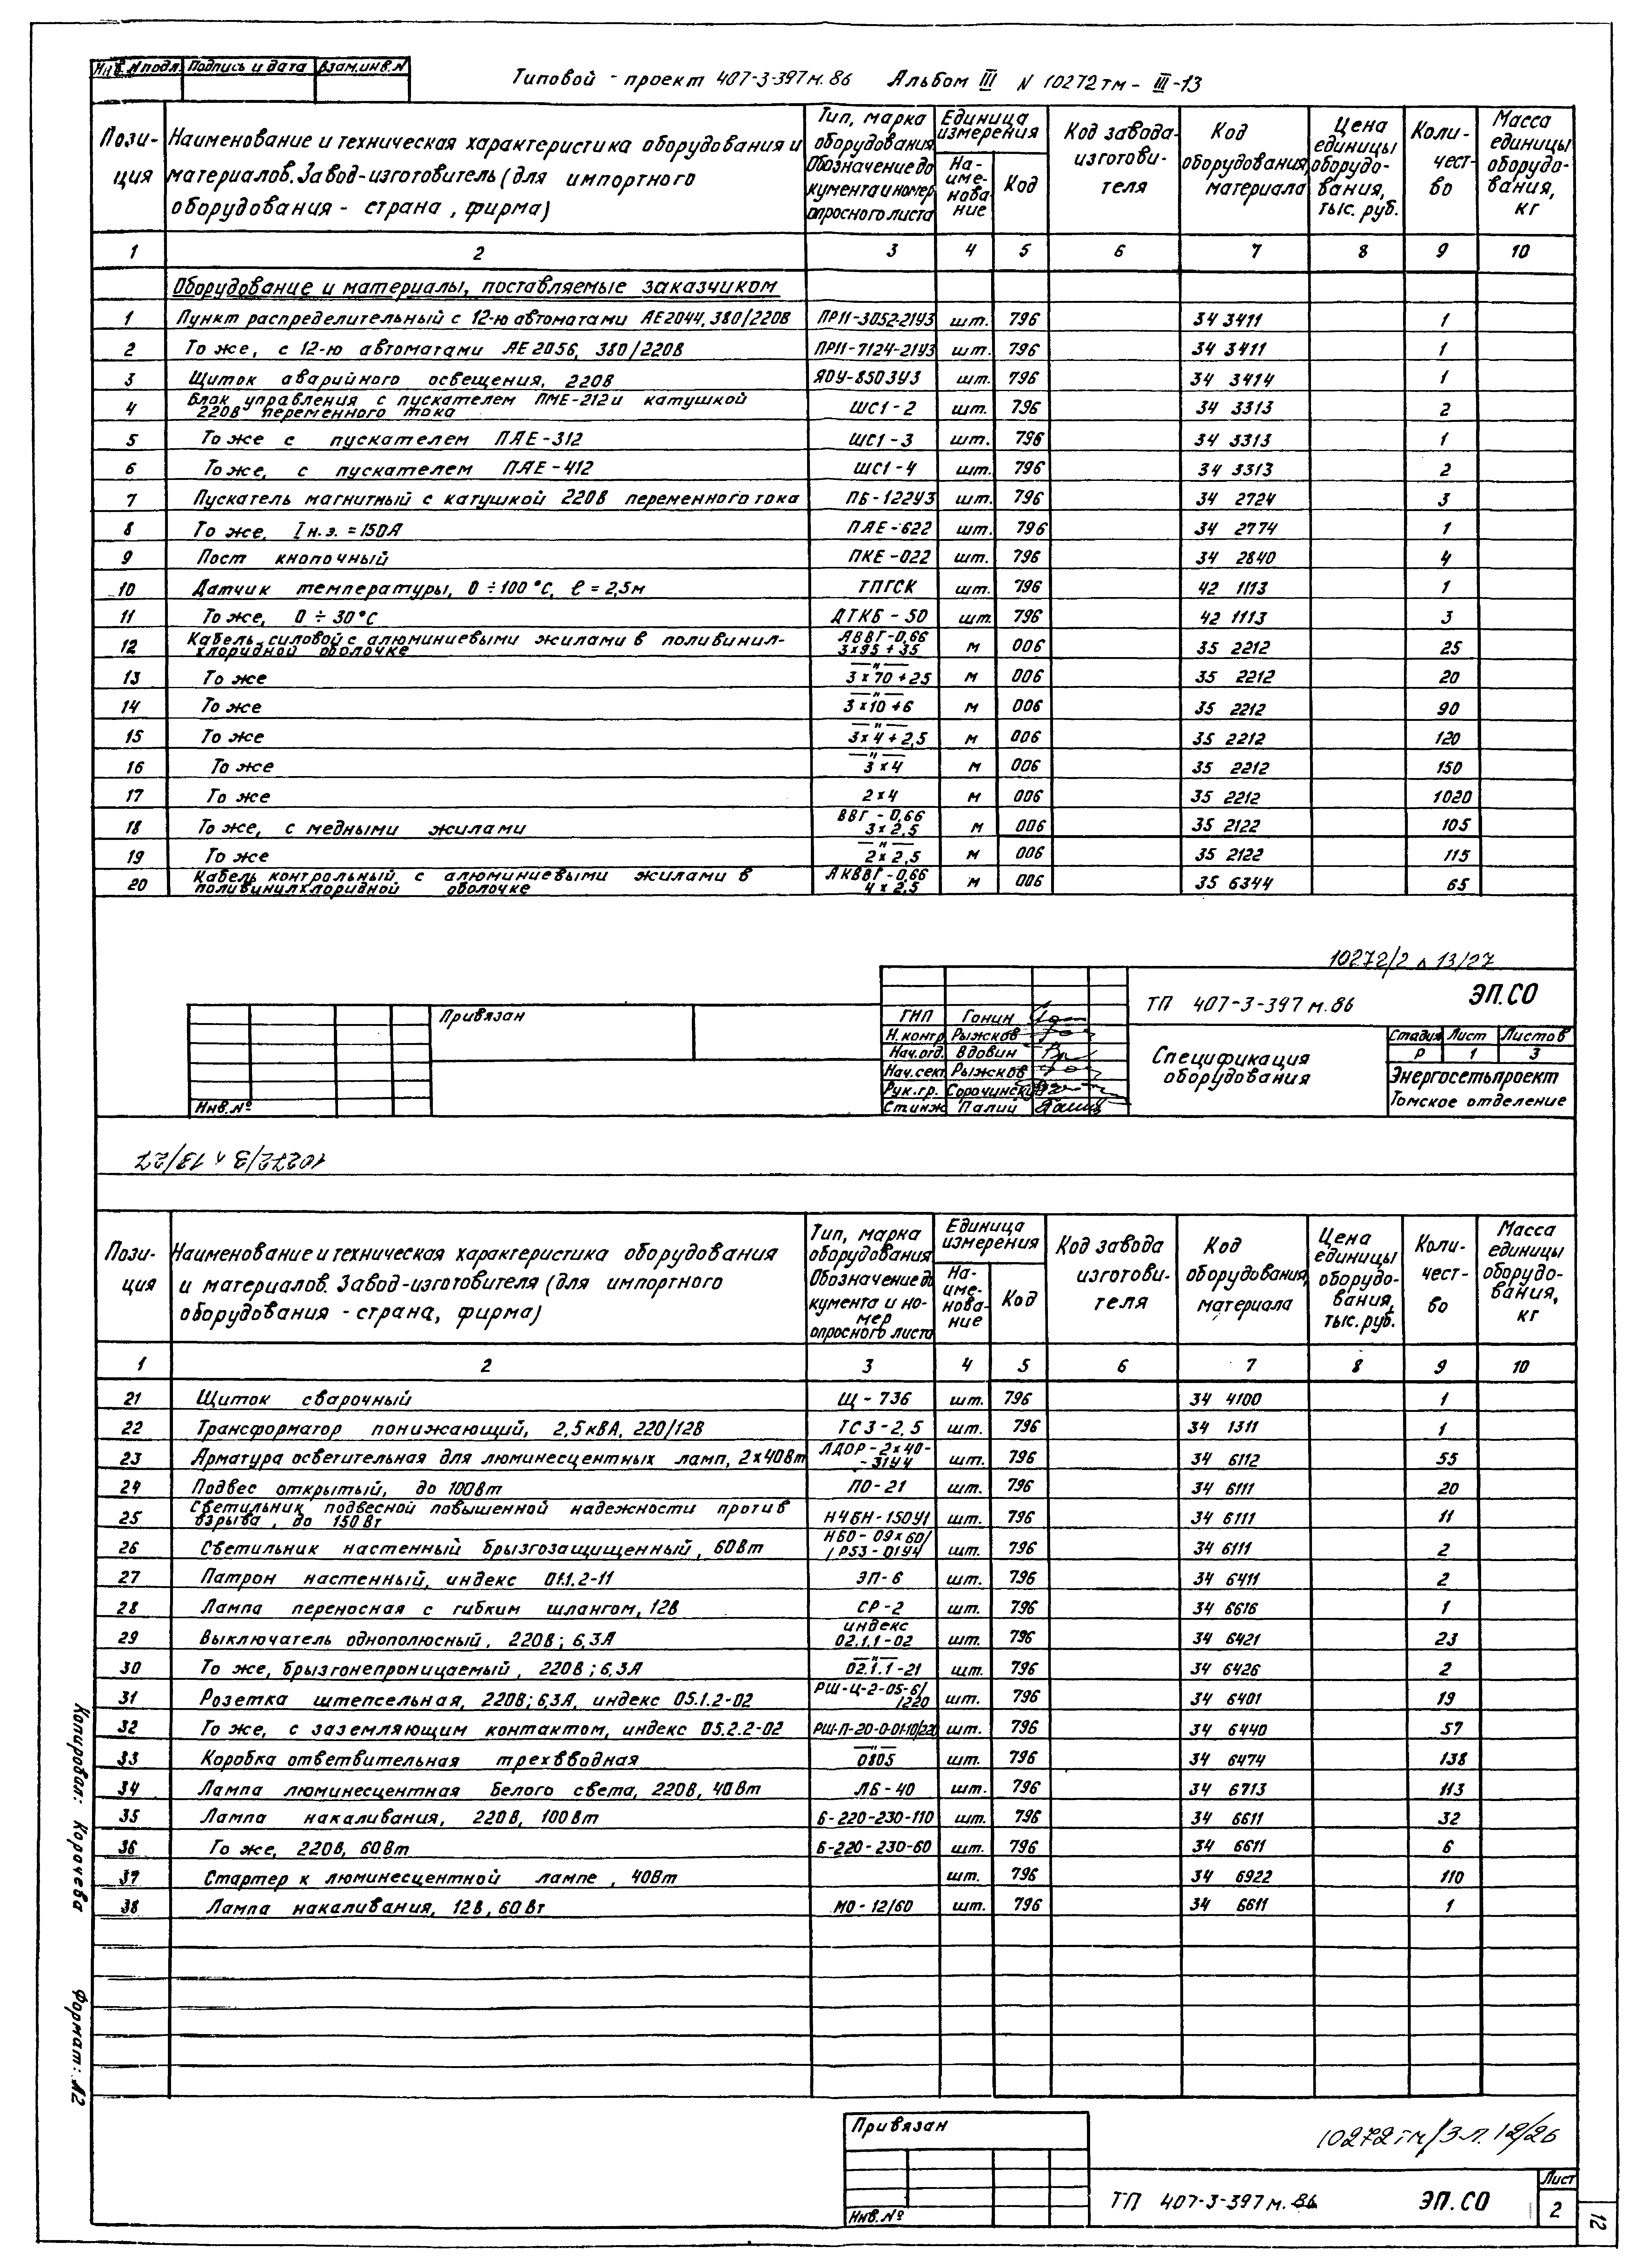 Инв. № подл. Подпись и дата Взам.инв.№
Типовой - проект 407-3-397м.86 Альбом III N 10272тм - III-13
Пози-ция Наименование и техническая характеристика оборудования и материалов. Завод-изготовитель (для импортного оборудования - страна, фирма) Тип, марка оборудования. Обозначение документа и номер опросного листа Единица измерения На-име-нова-ние Код Код завода-изготови-теля Код оборудования, материала Цена единицы оборудо-вания, тыс. руб. Коли-чест-во Масса единицы оборудо-вания, кг
1 2 3 4 5 6 7 8 9 10
Оборудование и материалы, поставляемые заказчиком
1 Пункт распределительный с 12-ю автоматами АЕ2044, 380/220В ПР11-3052-21У3 шт. 796 34 3411 1
2 То же, с 12-ю автоматами АЕ2056, 380/220В ПР11-7124-21У3 шт. 796 34 3411 1
3 Щиток аварийного освещения, 220В ЯОУ-8503У3 шт. 796 34 3414 1
4 Блок управления с пускателем ПМЕ-212 и катушкой
220В переменного тока ШС1-2 шт. 796 34 3313 2
5 То же с пускателем ПАЕ-312 ШС1-3 шт. 796 34 3313 1
6 То же, с пускателем ПАЕ-412 ШС1-4 шт. 796 34 3313 2
7 Пускатель магнитный с катушкой 220В переменного тока ПБ-122У3 шт. 796 34 2724 3
8 То же, Iн.э. = 150А ПАЕ-622 шт. 796 34 2774 1
9 Пост кнопочный ПКЕ-022 шт. 796 34 2840 4
10 Датчик температуры, 0÷100°С, ℓ = 2,5м ТПГСК шт. 796 42 1113 1
11 То же, 0÷30°С ДТКБ-50 шт. 796 42 1113 3
12 Кабель силовой с алюминиевыми жилами в поливинил-
хлоридной оболочке АВВГ-0,66 3х95+35 м 006 35 2212 25
13 То же —"— 3х70+25 м 006 35 2212 20
14 То же —"— 3х10+6 м 006 35 2212 90
15 То же —"— 3х4+2,5 м 006 35 2212 120
16 То же —"— 3х4 м 006 35 2212 150
17 То же 2х4 м 006 35 2212 1020
18 То же, с медными жилами ВВГ-0,66 3х2,5 м 006 35 2122 105
19 То же —"— 2х2,5 м 006 35 2122 115
20 Кабель контрольный с алюминиевыми жилами в
поливинилхлоридной оболочке АКВВГ-0,66 4х2,5 м 006 35 6344 65
10272/2 л 13/27
Привязан
Инв.№
ГИП Гонин
Н.контр Рыжков
Нач.отд. Вдовин
Нач.сект Рыжков
Рук.гр. Сорочинский
Ст.инж Палий
ТП 407-3-397м.86 ЭП.СО
Спецификация оборудования
Стадия Лист Листов
Р 1 3
Энергосетьпроект
Томское отделение
10272/3 л 13/27
Пози-ция Наименование и техническая характеристика оборудования и материалов. Завод-изготовителя (для импортного оборудования - страна, фирма) Тип, марка оборудования Обозначение документа и но-мер опросного листа Единица измерения На-име-нова-ние Код Код завода изготови-теля Код оборудования, материала Цена единицы оборудо-вания, тыс. руб. Коли-чест-во Масса единицы оборудо-вания, кг
1 2 3 4 5 6 7 8 9 10
21 Щиток сварочный Щ-736 шт. 796 34 4100 1
22 Трансформатор понижающий, 2,5кВА, 220/12В ТСЗ-2,5 шт. 796 34 1311 1
23 Арматура осветительная для люминесцентных ламп, 2х40Вт ЛДОР-2х40--31У4 шт. 796 34 6112 55
24 Подвес открытый, до 100Вт ПО-21 шт. 796 34 6111 20
25 Светильник подвесной повышенной надежности против
взрыва, до 150Вт Н4БН-150У1 шт. 796 34 6111 11
26 Светильник настенный брызгозащищенный, 60Вт НБО-09х60/ /Р53-01У4 шт. 796 34 6111 2
27 Патрон настенный, индекс 01.1.2-11 ЭП-6 шт. 796 34 6411 2
28 Лампа переносная с гибким шлангом, 12В СР-2 шт. 796 34 6616 1
29 Выключатель однополюсный, 220В; 6,3А индекс 02.1.1-02 шт. 796 34 6421 23
30 То же, брызгонепроницаемый, 220В; 6,3А —"— 02.1.1-21 шт. 796 34 6426 2
31 Розетка штепсельная, 220В; 6,3А, индекс 05.1.2-02 РШ-Ц-2-05-6/ /220 шт. 796 34 6401 19
32 То же, с заземляющим контактом, индекс 05.2.2-02 РШ-П-20-0-01-10/220 шт. 796 34 6440 57
33 Коробка ответвительная трехвводная —"— 0805 шт. 796 34 6474 138
34 Лампа люминесцентная белого света, 220В, 40Вт ЛБ-40 шт. 796 34 6713 113
35 Лампа накаливания, 220В, 100Вт Б-220-230-110 шт. 796 34 6611 32
36 То же, 220В, 60Вт Б-220-230-60 шт. 796 34 6611 6
37 Стартер к люминесцентной лампе, 40Вт шт. 796 34 6922 110
38 Лампа накаливания, 12В, 60Вт МО-12/60 шт. 796 34 6611 1
Копировал: Корочева Формат: А2
Привязан
Инв.№
10272тм/3 л. 12/26
ТП 407-3-397м.86 ЭП.СО
Лист
2
12